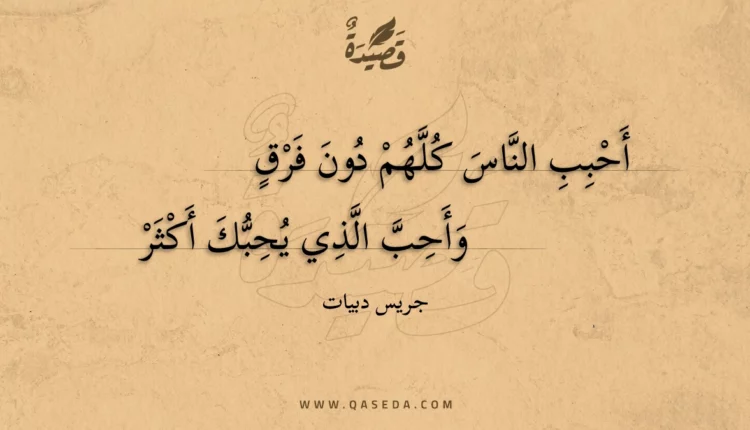 قَصِيدَةٌ
أَحْبِبِ النَّاسَ كُلَّهُمْ دُونَ فَرْقٍ
وَأَحِبَّ الَّذِي يُحِبُّكَ أَكْثَرْ
جريس دبيات
WWW.QASEDA.COM